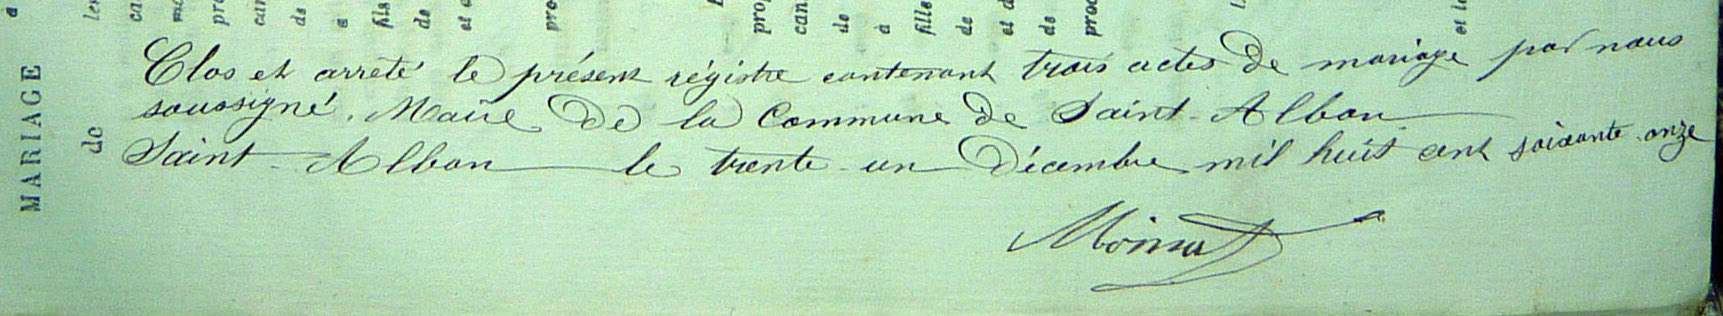 Clos et arrêté le présent régistre contenant trois actes de mariage par nous
soussigné, Maire de la Commune de Saint-Alban
Saint-Alban le trente-un Décembre mil huit cent soixante-onze
MARIAGE
de